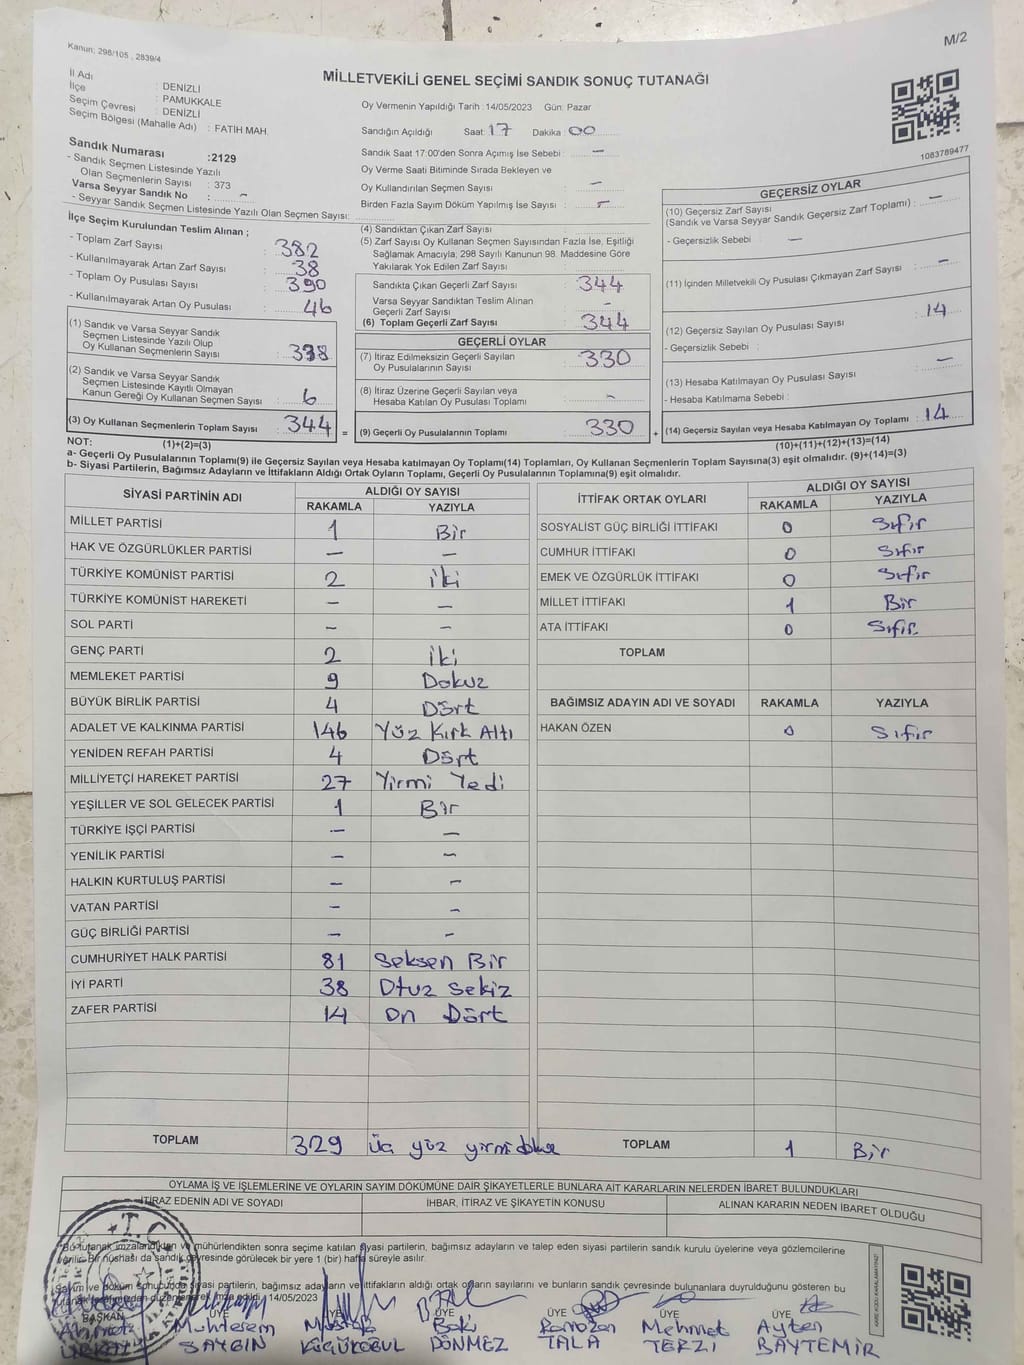 M/2
Kanun; 298/105 , 2839/4
MİLLETVEKİLİ GENEL SEÇİMİ SANDIK SONUÇ TUTANAĞI
İl Adı : DENİZLİ
İlçe : PAMUKKALE
Seçim Çevresi : DENİZLİ
Seçim Bölgesi (Mahalle Adı) : FATİH MAH.
Sandık Numarası :2129
- Sandık Seçmen Listesinde Yazılı
Olan Seçmenlerin Sayısı : 373
Varsa Seyyar Sandık No : –
- Seyyar Sandık Seçmen Listesinde Yazılı Olan Seçmen Sayısı:
Oy Vermenin Yapıldığı Tarih : 14/05/2023 Gün: Pazar
Sandığın Açıldığı Saat: 17 Dakika : 00
Sandık Saat 17:00'den Sonra Açımış İse Sebebi : —
Oy Verme Saati Bitiminde Sırada Bekleyen ve
Oy Kullandırılan Seçmen Sayısı : –
Birden Fazla Sayım Döküm Yapılmış İse Sayısı : –
1083789477
İlçe Seçim Kurulundan Teslim Alınan ;
- Toplam Zarf Sayısı : 382
- Kullanılmayarak Artan Zarf Sayısı : 38
- Toplam Oy Pusulası Sayısı : 390
- Kullanılmayarak Artan Oy Pusulası : 46
(1) Sandık ve Varsa Seyyar Sandık
Seçmen Listesinde Yazılı Olup
Oy Kullanan Seçmenlerin Sayısı :
(2) Sandık ve Varsa Seyyar Sandık
Seçmen Listesinde Kayıtlı Olmayan
Kanun Gereği Oy Kullanan Seçmen Sayısı : 6
(3) Oy Kullanan Seçmenlerin Toplam Sayısı : 344 =
(4) Sandıktan Çıkan Zarf Sayısı :
(5) Zarf Sayısı Oy Kullanan Seçmen Sayısından Fazla İse, Eşitliği
Sağlamak Amacıyla; 298 Sayılı Kanunun 98. Maddesine Göre
Yakılarak Yok Edilen Zarf Sayısı :
Sandıkta Çıkan Geçerli Zarf Sayısı : 344
Varsa Seyyar Sandıktan Teslim Alınan
Geçerli Zarf Sayısı : –
(6) Toplam Geçerli Zarf Sayısı : 344
GEÇERLİ OYLAR
(7) İtiraz Edilmeksizin Geçerli Sayılan
Oy Pusulalarının Sayısı : 330
(8) İtiraz Üzerine Geçerli Sayılan veya
Hesaba Katılan Oy Pusulası Toplamı : –
(9) Geçerli Oy Pusulalarının Toplamı : 330 +
GEÇERSİZ OYLAR
(10) Geçersiz Zarf Sayısı
(Sandık ve Varsa Seyyar Sandık Geçersiz Zarf Toplamı) : –
- Geçersizlik Sebebi : —
(11) İçinden Milletvekili Oy Pusulası Çıkmayan Zarf Sayısı : –
(12) Geçersiz Sayılan Oy Pusulası Sayısı : 14
- Geçersizlik Sebebi :
(13) Hesaba Katılmayan Oy Pusulası Sayısı : —
- Hesaba Katılmama Sebebi :
(14) Geçersiz Sayılan veya Hesaba Katılmayan Oy Toplamı : 14
NOT: (1)+(2)=(3)
(10)+(11)+(12)+(13)=(14)
a- Geçerli Oy Pusulalarının Toplamı(9) ile Geçersiz Sayılan veya Hesaba katılmayan Oy Toplamı(14) Toplamları, Oy Kullanan Seçmenlerin Toplam Sayısına(3) eşit olmalıdır. (9)+(14)=(3)
b- Siyasi Partilerin, Bağımsız Adayların ve İttifakların Aldığı Ortak Oyların Toplamı, Geçerli Oy Pusulalarının Toplamına(9) eşit olmalıdır.
SİYASİ PARTİNİN ADI ALDIĞI OY SAYISI
RAKAMLA YAZIYLA
MİLLET PARTİSİ 1 Bir
HAK VE ÖZGÜRLÜKLER PARTİSİ — —
TÜRKİYE KOMÜNİST PARTİSİ 2 iki
TÜRKİYE KOMÜNİST HAREKETİ – —
SOL PARTİ – –
GENÇ PARTİ 2 iki
MEMLEKET PARTİSİ 9 Dokuz
BÜYÜK BİRLİK PARTİSİ 4 Dört
ADALET VE KALKINMA PARTİSİ 146 Yüz Kırk Altı
YENİDEN REFAH PARTİSİ 4 Dört
MİLLİYETÇİ HAREKET PARTİSİ 27 Yirmi Yedi
YEŞİLLER VE SOL GELECEK PARTİSİ 1 Bir
TÜRKİYE İŞÇİ PARTİSİ — —
YENİLİK PARTİSİ – –
HALKIN KURTULUŞ PARTİSİ – –
VATAN PARTİSİ – –
GÜÇ BİRLİĞİ PARTİSİ – –
CUMHURİYET HALK PARTİSİ 81 Seksen Bir
İYİ PARTİ 38 Otuz Sekiz
ZAFER PARTİSİ 14 On Dört
TOPLAM 329 üç yüz yirmi dokuz
İTTİFAK ORTAK OYLARI ALDIĞI OY SAYISI
RAKAMLA YAZIYLA
SOSYALİST GÜÇ BİRLİĞİ İTTİFAKI 0 Sıfır
CUMHUR İTTİFAKI 0 Sıfır
EMEK VE ÖZGÜRLÜK İTTİFAKI 0 Sıfır
MİLLET İTTİFAKI 1 Bir
ATA İTTİFAKI 0 Sıfır
TOPLAM
BAĞIMSIZ ADAYIN ADI VE SOYADI RAKAMLA YAZIYLA
HAKAN ÖZEN 0 Sıfır
TOPLAM 1 Bir
OYLAMA İŞ VE İŞLEMLERİNE VE OYLARIN SAYIM DÖKÜMÜNE DAİR ŞİKAYETLERLE BUNLARA AİT KARARLARIN NELERDEN İBARET BULUNDUKLARI
İTİRAZ EDENİN ADI VE SOYADI İHBAR, İTİRAZ VE ŞİKAYETİN KONUSU ALINAN KARARIN NEDEN İBARET OLDUĞU
T.C.
"Bu tutanak imzalandıktan ve mühürlendikten sonra seçime katılan siyasi partilerin, bağımsız adayların ve talep eden siyasi partilerin sandık kurulu üyelerine veya gözlemcilerine
verilir. Bir nüshası da sandık çevresinde görülecek bir yere 1 (bir) hafta süreyle asılır.
Sayım ve döküm sonucunda siyasi partilerin, bağımsız adayların ve ittifakların aldığı ortak oyların sayılarını ve bunların sandık çevresinde bulunanlara duyurulduğunu gösteren bu
14/05/2023
BAŞKAN ÜYE ÜYE ÜYE ÜYE ÜYE ÜYE
Ahmet Muhterem Mustafa Baki Ramazan Mehmet Ayten
SAYGIN KÜÇÜKOĞUL DÖNMEZ TALA TERZİ BAYTEMİR